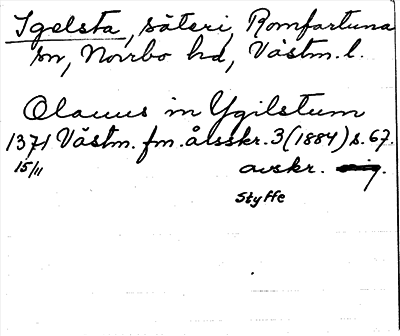 Igelsta, säteri, Romfartuna
sn, Norrbo hd, Västm. l.
Olauus in Ygilstum
1371 Västm. fm. årsskr. 3 (1884) s. 67.
15/11 avskr.
Styffe